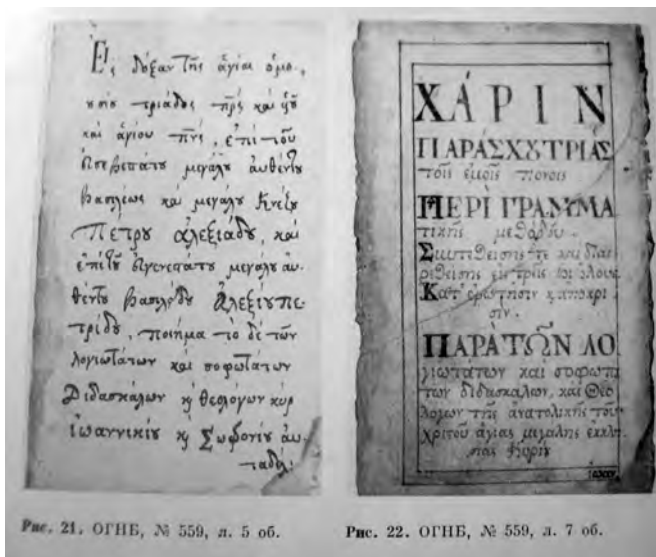 Εἰς δόξαν τῆς ἁγίας ὁμο,
ȣσίȣ τριάδος πρ̅ς καὶ ὑȣ͂
καὶ ἁγίου πν̅ς, ἐπὶ τοῦ
εὐσεβεστάτȣ μεγάλȣ αὐθέντȣ
βασιλέως καὶ μεγάλȣ Κνέζȣ
Πέτρȣ ἀλεξιάδȣ, καὶ
ἐπὶ τȣ͂ εὐγενεστάτȣ μεγάλȣ αὐ-
θέντȣ Ἀλεξίȣ πε-
τρίδȣ, ποίημα τὸ δὲ τῶν
λογιωτάτων καὶ σοφωτάτων
Διδασκάλων ϗ θεολόγων κὺρ
Ἰωαννικίȣ ϗ Σωφρονίȣ αὐ-
ταδέλ:
ΧΆΡΙΝ
ΠΑΡΆΣΧȢ ΤΡΙᾺΣ
τοῖς ἐμοῖς πόνοις
ΠΕΡῚ ΓΡΑΜΜΑ
τικῆς μεθόδȣ.
Συντεθείσης τε καὶ διαι
ρεθείσης εἰς τρεῖς
Κατ' ἐρώτησιν ϗ ἀπόκρι
σιν.
ΠΑΡᾺ ΤΩ͂Ν ΛΟ
γιωτάτων καὶ σοφωτά
των διδασκάλων, καὶ Θεο
λόγων τῆς ἀνατολικῆς τοῦ
Χριστοῦ ἁγίας μεγάλης ἐκκλη
σίας
Рис. 21. ОГНБ, № 559, л. 5 об.
Рис. 22. ОГНБ, № 559, л. 7 об.